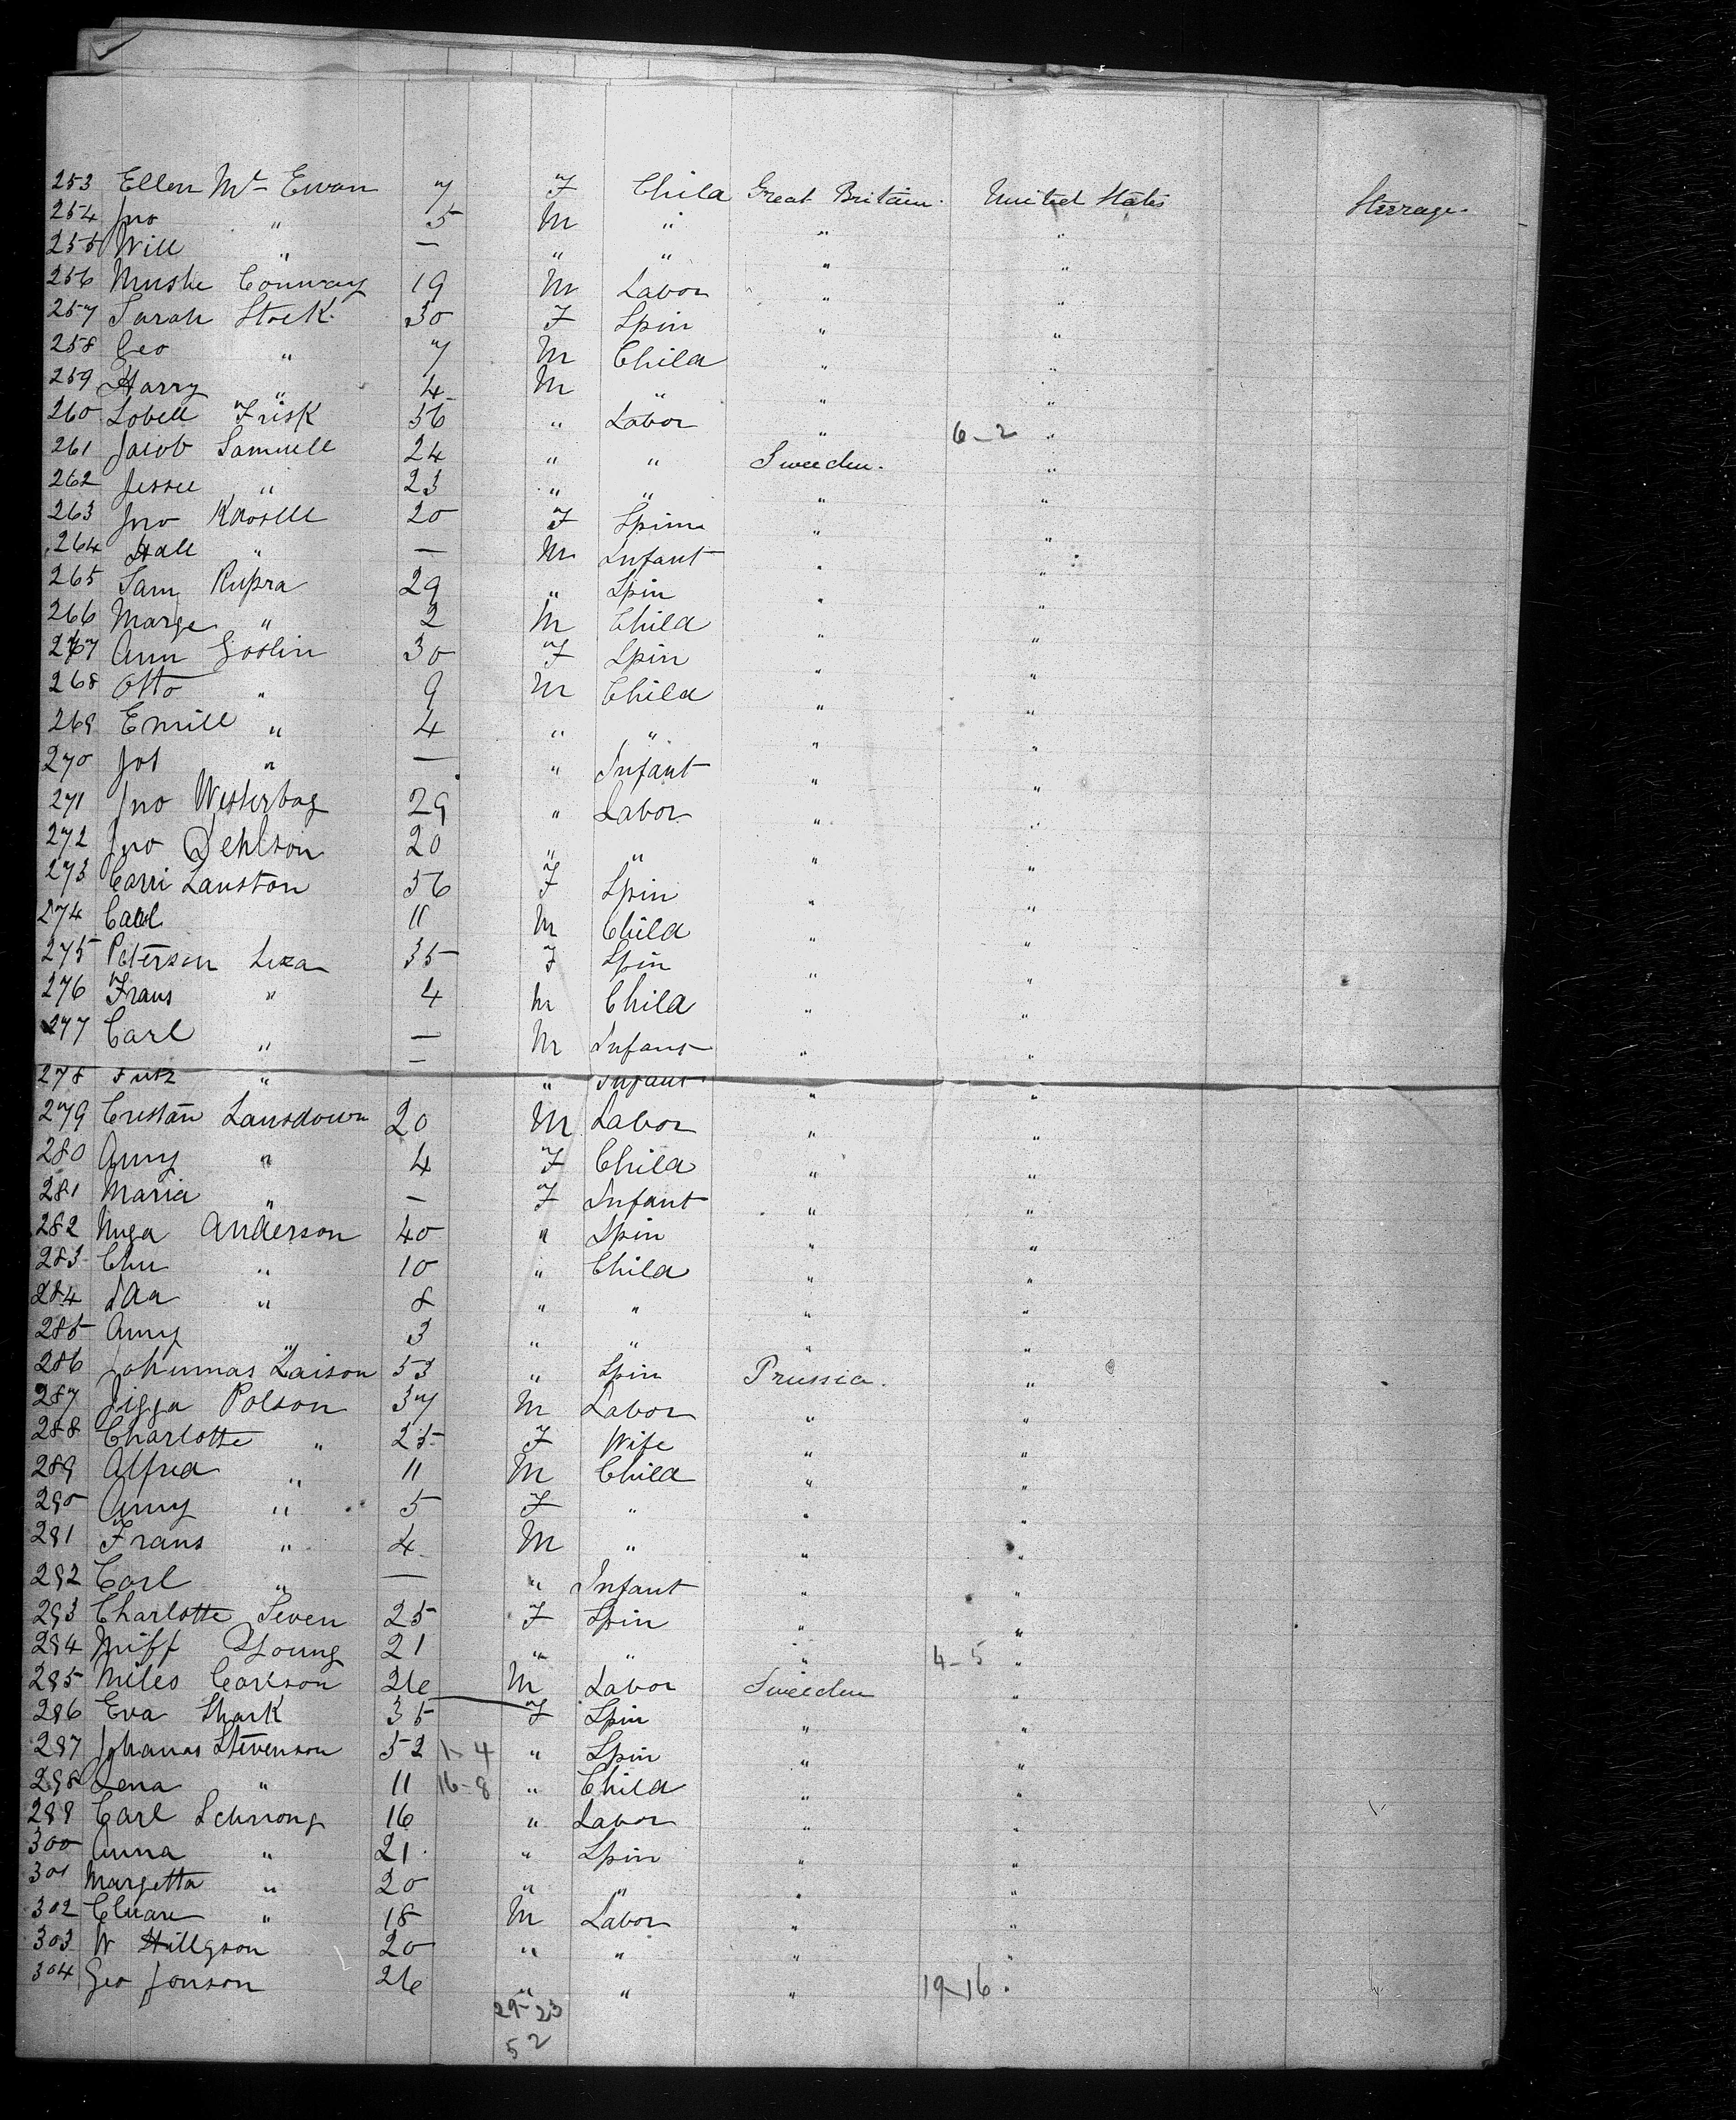 253 Ellen Mc Ewan 7 F Child Great Britain. United States Steerage.
254 Jno " 5 M " " "
255 Will " — " " " "
256 Conway 19 M Labor " "
257 Sarah Stock 30 F Spin " "
258 Geo " 7 M Child " "
259 Harry " 4 M " " "
260 Lobell Frisk 56 " Labor " 6-2 "
261 Jacob Samuell 24 " " Sweeden. "
262 Jessee " 23 " " " "
263 Jno 20 F Spinn " "
264 Hall " — M Infant " "
265 Sam Rupra 29 " Spin " "
266 Marge " 2 M Child " "
267 Ann Goslin 30 F Spin " "
268 Otto " 9 M Child " "
269 Emill " 4 " " " "
270 Jos " — " Infant " "
271 Jno Westerbag 29 " Labor " "
272 Jno Dehlson 20 " " " "
273 Carri Lauston 56 F Spin " "
274 Carl 11 M Child " "
275 Peterson Liza 35 F Spin " "
276 Frans " 4 M Child " "
277 Carl " — M Infant " "
278 Fritz " — " Infant " "
279 Cristan Lansdown 20 M Labor " "
280 Amy " 4 F Child " "
281 Maria " — F Infant " "
282 Anderson 40 " Spin " "
283 " 10 " Child " "
284 Ida " 8 " " " "
285 Amy " 3 " " " "
286 Johunnas Laison 53 " Spin Prussia. "
287 Jigga Polson 37 M Labor " "
288 Charlotte " 25 F Wife " "
289 Alfred " 11 M Child " "
290 Amy " 5 F " " "
291 Frans " 4 M " " "
292 Carl " — " Infant " "
293 Charlotte Seven 25 F Spin " "
294 Young 21 " " " 4-5 "
295 Miles Carlson 26 M Labor Sweeden "
296 Eva Shark 35 F Spin " "
297 Johanas Stevenson 52 1-4 " Spin " "
298 Lena " 11 16-8 " Child " "
299 Carl Schrong 16 " Labor " "
300 Anna " 21 " Spin " "
301 Margetta " 20 " " " "
302 " 18 M Labor " "
303 W Hillgson 20 " " " "
304 Geo Jonson 26 " " " 19-16 "
29-23
52